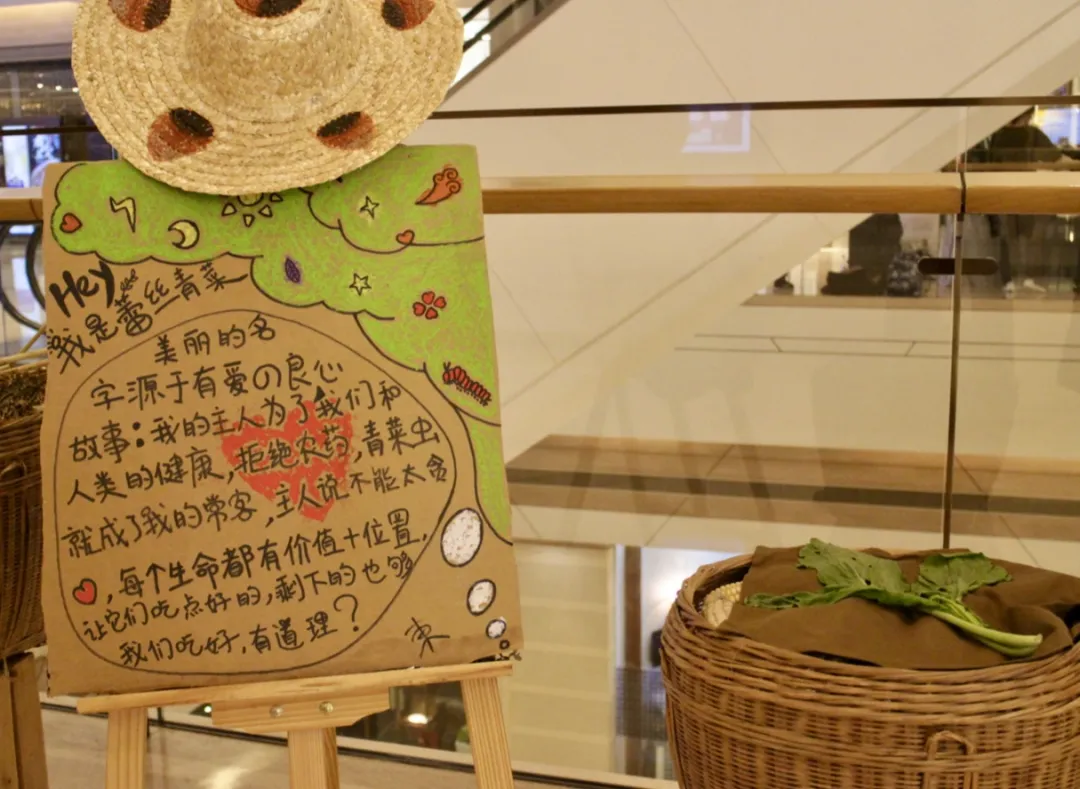 Hey
我是蕾丝青菜
美丽的名
字源于有爱の良心
故事:我的主人为了我们和
人类的健康,拒绝农药,青菜虫
就成了我的常客,主人说不能太贪
,每个生命都有价值+位置,
让它们吃点好的,剩下的也够
我们吃好,有道理?